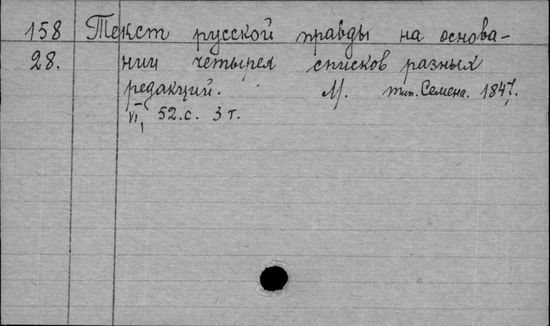 158 Текст русской правды на основа-
28. нии четырех списков разных
редакций. М. тип. Семена. 1847.
VI, 52.с. 3 т.